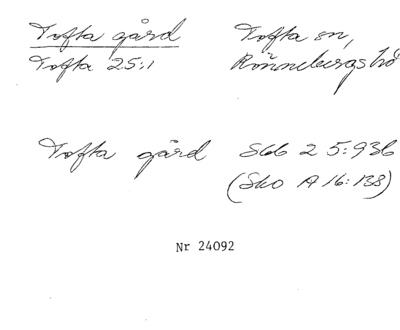 Tofta gård Tofta sn,
Tofta 25:1 Rönnebergs hd
Tofta gård Skb 2 5:936
(Sko A 16:138)
Nr 24092